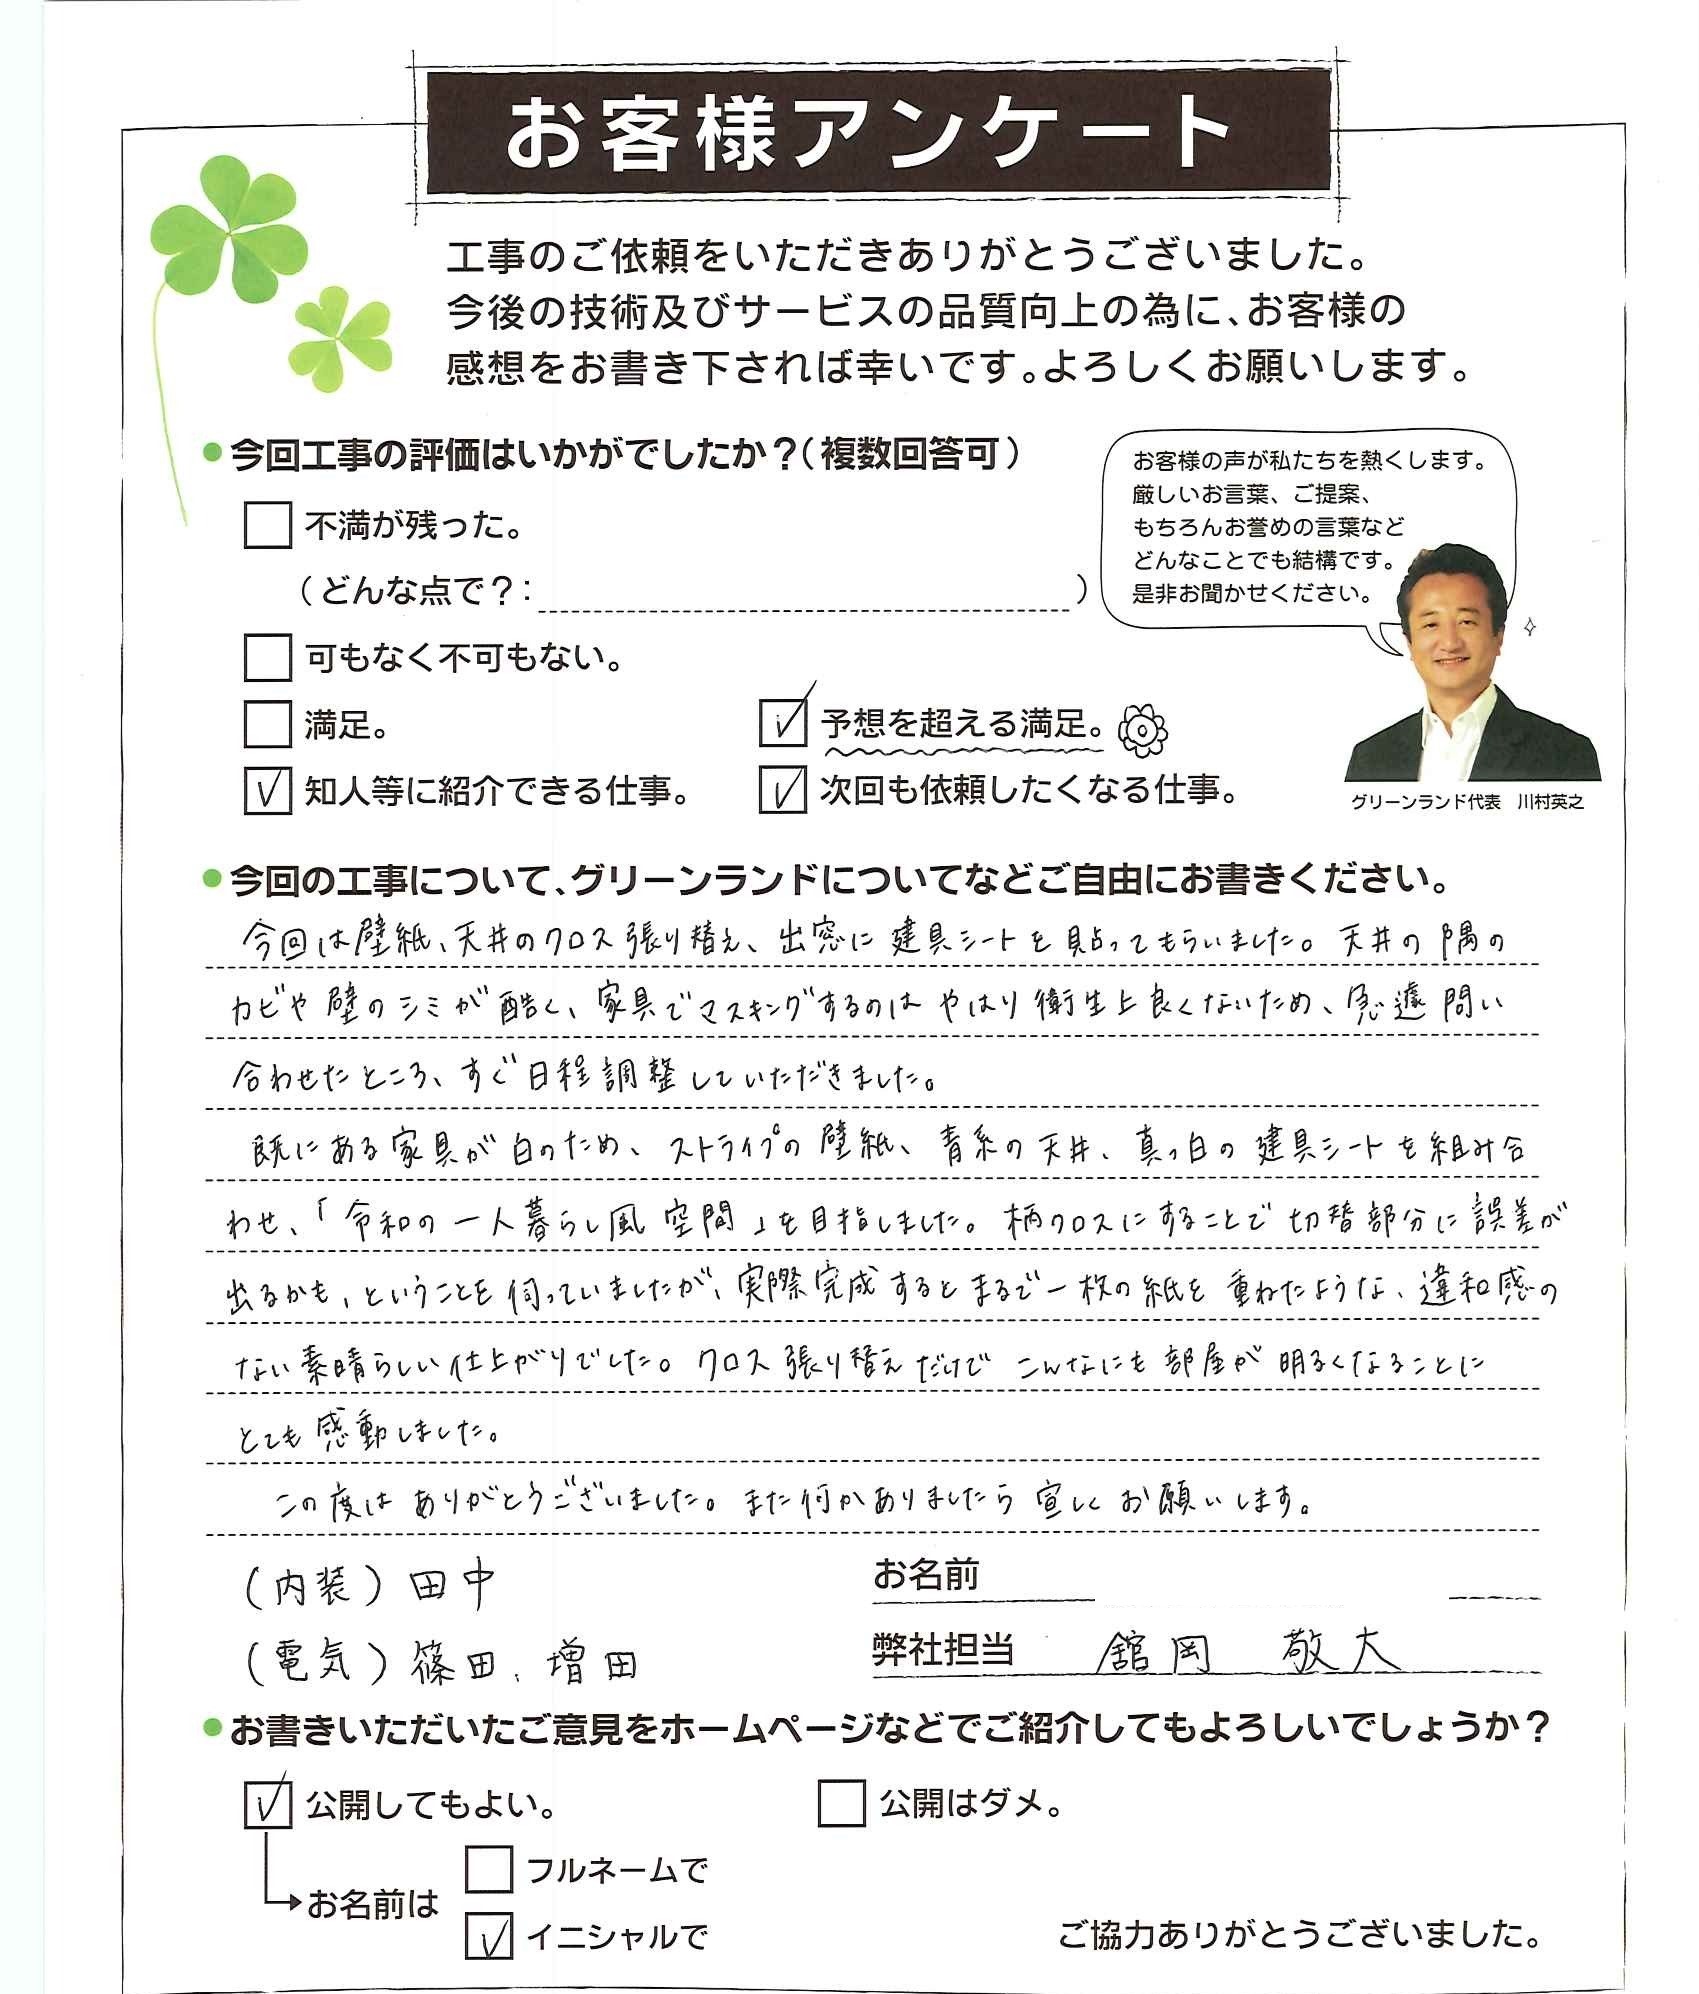 お客様アンケート
工事のご依頼をいただきありがとうございました。
今後の技術及びサービスの品質向上の為に、お客様の
感想をお書き下されば幸いです。よろしくお願いします。
今回工事の評価はいかがでしたか？（複数回答可）
不満が残った。
（どんな点で？：　）
可もなく不可もない。
満足。
予想を超える満足。
知人等に紹介できる仕事。
次回も依頼したくなる仕事。
お客様の声が私たちを熱くします。
厳しいお言葉、ご提案、
もちろんお誉めの言葉など
どんなことでも結構です。
是非お聞かせください。
グリーンランド代表　川村英之
今回の工事について、グリーンランドについてなどご自由にお書きください。
今回は壁紙、天井のクロス張り替え、出窓に建具シートを貼ってもらいました。天井の隅の
カビや壁のシミが酷く、家具でマスキングするのはやはり衛生上良くないため、急遽問い
合わせたところ、すぐ日程調整していただきました。
既にある家具が白のため、ストライプの壁紙、青系の天井、真っ白の建具シートを組み合
わせ、「令和の一人暮らし風空間」を目指しました。柄クロスにすることで切替部分に誤差が
出るかも、ということを伺っていましたが、実際完成するとまるで一枚の紙を重ねたような、違和感の
ない素晴らしい仕上がりでした。クロス張り替えだけでこんなにも部屋が明るくなることに
とても感動しました。
この度はありがとうございました。また何かありましたら宜しくお願いします。
（内装）田中
お名前
（電気）篠田、増田
弊社担当　舘岡　敬大
お書きいただいたご意見をホームページなどでご紹介してもよろしいでしょうか？
公開してもよい。
公開はダメ。
お名前は
フルネームで
イニシャルで
ご協力ありがとうございました。